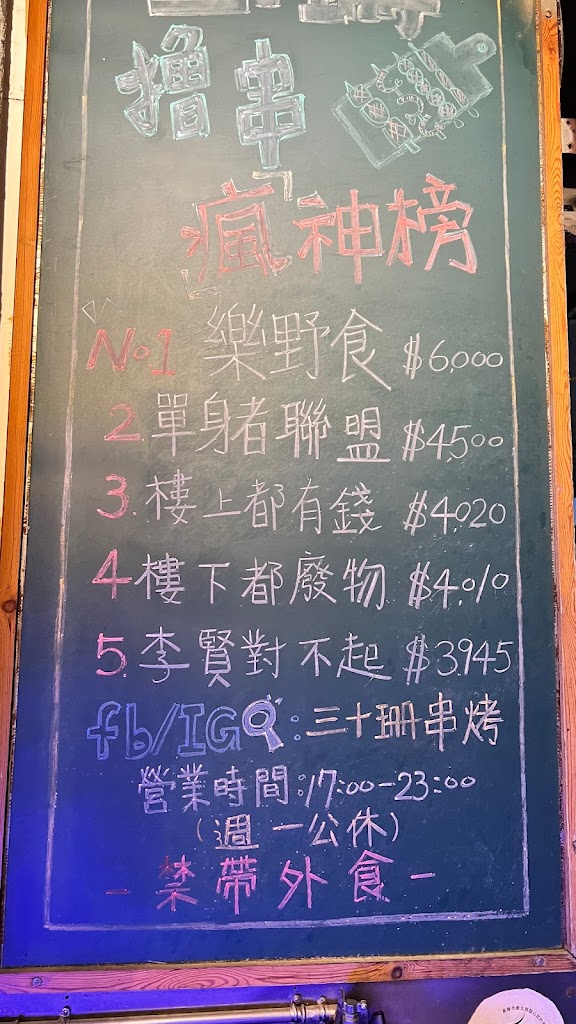 擼串
「瘋」神榜
No.1 樂野食 $6,000
2. 單身者聯盟 $4,500
3. 樓上都有錢 $4,020
4. 樓下都廢物 $4,010
5. 李賢對不起 $3,945
fb/IG：三十珊串烤
營業時間：17:00-23:00
(週一公休)
- 禁帶外食 -